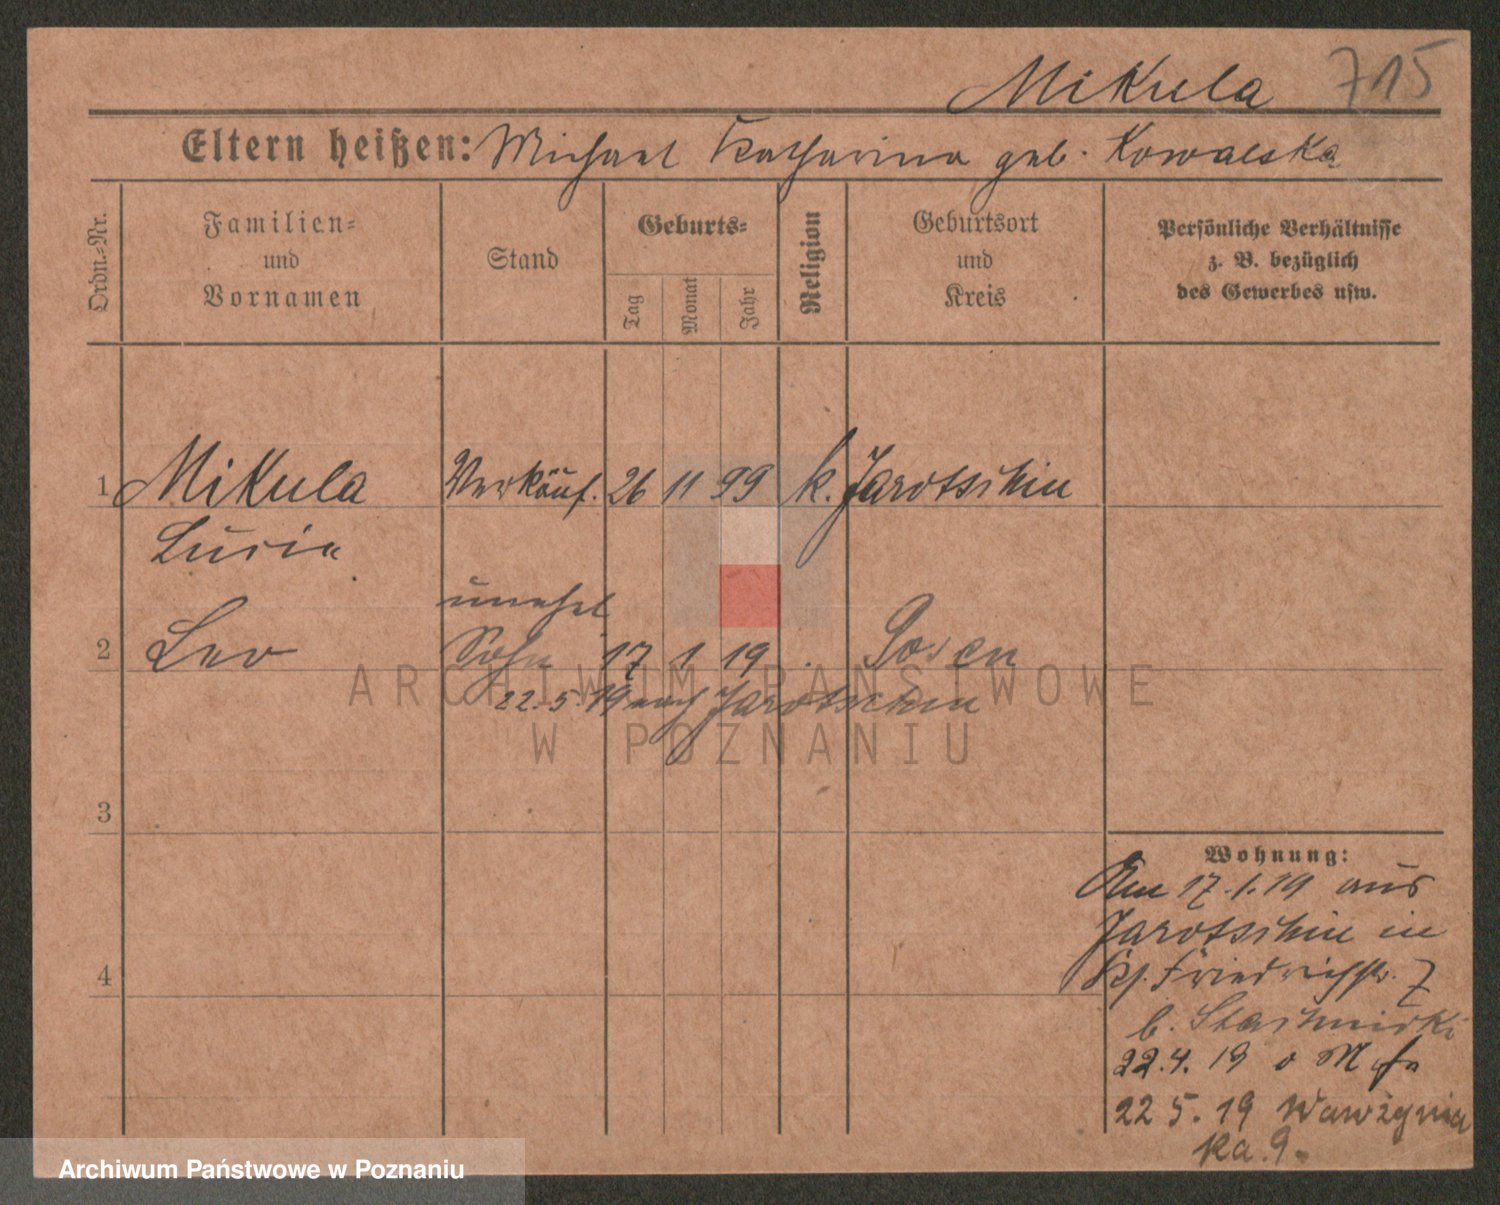 Mikula 715
Eltern heißen: Michael Katharina geb. Kowalska
Ordn.-Nr.
Familien-
und
Vornamen
Stand
Geburts-
Tag
Monat
Jahr
Religion
Geburtsort
und
Kreis
Persönliche Verhältnisse
z. B. bezüglich
des Gewerbes usw.
1 Mikula Verkäuf. 26 11 99 k. Jarotschin
Lucia
unehel
2 Leo Sohn 17 1 19 Posen
22.5.19 nach Jarotschin
3
4
Wohnung:
Am 17.1.19 aus
Jarotschin in
Friedrichstr. 7
b.
22.4.19 o M
22 5.19 Wawżynia
ka 9.
ARCHIWUM PAŃSTWOWE
W POZNANIU
Archiwum Państwowe w Poznaniu